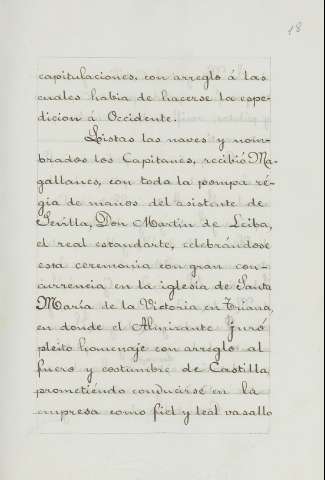 18
capitulaciones, con arreglo á las
cuales habia de hacerse la espe-
dicion á Occidente.
Listas las naves y nom-
brados los Capitanes, recibió Ma-
gallanes, con toda la pompa ré-
gia de manos del asistente de
Sevilla, Don Martin de Leiba,
el real estandarte, celebrándose
esta ceremonia con gran con-
currencia en la iglesia de Santa
María de la Victoria en Triana,
en donde el Almirante juró
pleito homenaje con arreglo al
fuero y costumbre de Castilla,
prometiéndo conducirse en la
empresa como fiel y leal vasallo